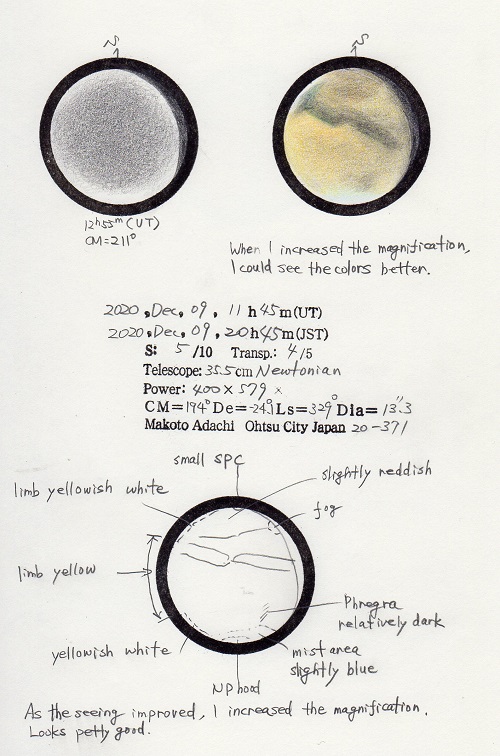 S
S
12h53m (UT)
CM=211°
When I increased the magnification,
I could see the colors better.
2020, Dec, 09, 11 h 45 m (UT)
2020, Dec, 09, 20 h 45 m (JST)
S: 5 /10 Transp.: 4 /5
Telescope: 35.5cm Newtonian
Power: 400 × 579 ×
CM=194° De=-24.9 Ls=329° Dia= 13".3
Makoto Adachi Ohtsu City Japan 20-371
small SPC
slightly reddish
limb yellowish white
fog
limb yellow
Phregra
relatively dark
yellowish white
mist area
slightly blue
NP hood
As the seeing improved, I increased the magnification.
Looks petty good.